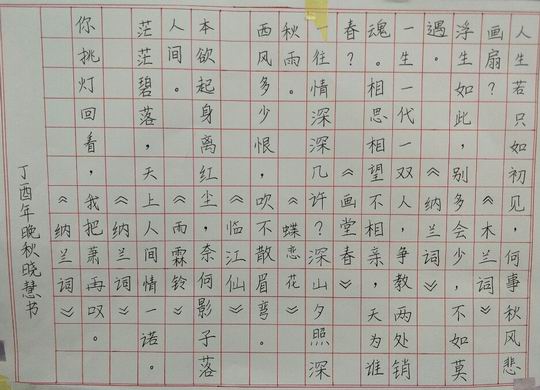 人生若只如初见，何事秋风悲
画扇？《木兰词》
浮生如此，别多会少，不如莫
遇。《纳兰词》
一生一代一双人，争教两处销
魂。相思相望不相亲，天为谁
春？《画堂春》
一往情深深几许？深山夕照深
秋雨。《蝶恋花》
西风多少恨，吹不散眉弯。
《临江仙》
本欲起身离红尘，奈何影子落
人间。《雨霖铃》
茫茫碧落，天上人间情一诺。
《纳兰词》
你挑灯回看，我把萧再叹。
《纳兰词》
丁酉年晚秋晓慧书